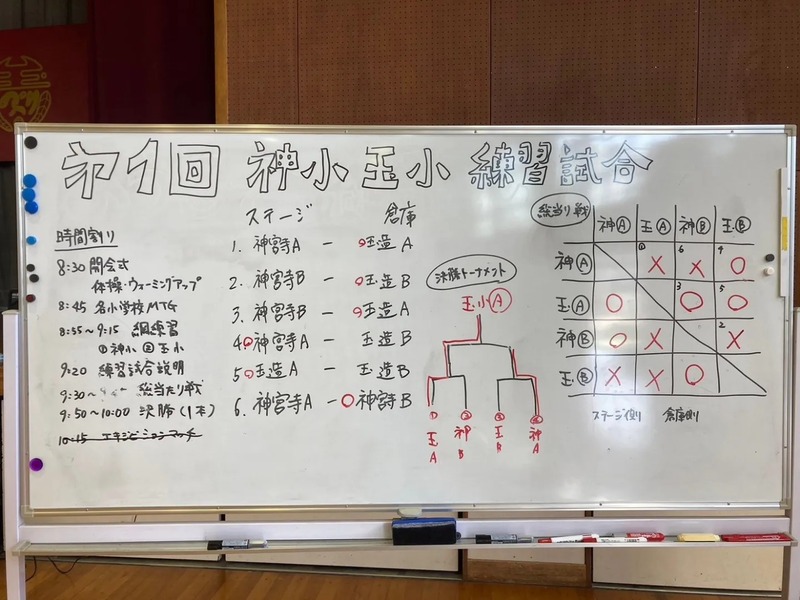 第1回 神小 玉小 練習試合
時間割り
8:30 開会式
体操・ウォーミングアップ
8:45 各小学校MTG
8:55～9:15 綱練習
①神小 ②玉小
9:20 練習試合説明
9:30～ 総当たり戦
9:50～10:00 決勝(1本)
10:15 エキシビションマッチ
ステージ 倉庫
1. 神宮寺A － ○玉造A
2. 神宮寺B － ○玉造B
3. 神宮寺B － ○玉造A
4.○神宮寺A － 玉造B
5.○玉造A － 玉造B
6. 神宮寺A － ○神宮寺B
決勝トーナメント
玉小Ⓐ
① ② ③ ④
玉A 神B 玉B 神A
総当り戦
神Ⓐ 玉Ⓐ 神Ⓑ 玉Ⓑ
神Ⓐ ① × 6 × 4 ○
玉Ⓐ ○ 3 ○ 5 ○
神Ⓑ ○ × 2 ×
玉Ⓑ × × ○
ステージ側 倉庫側